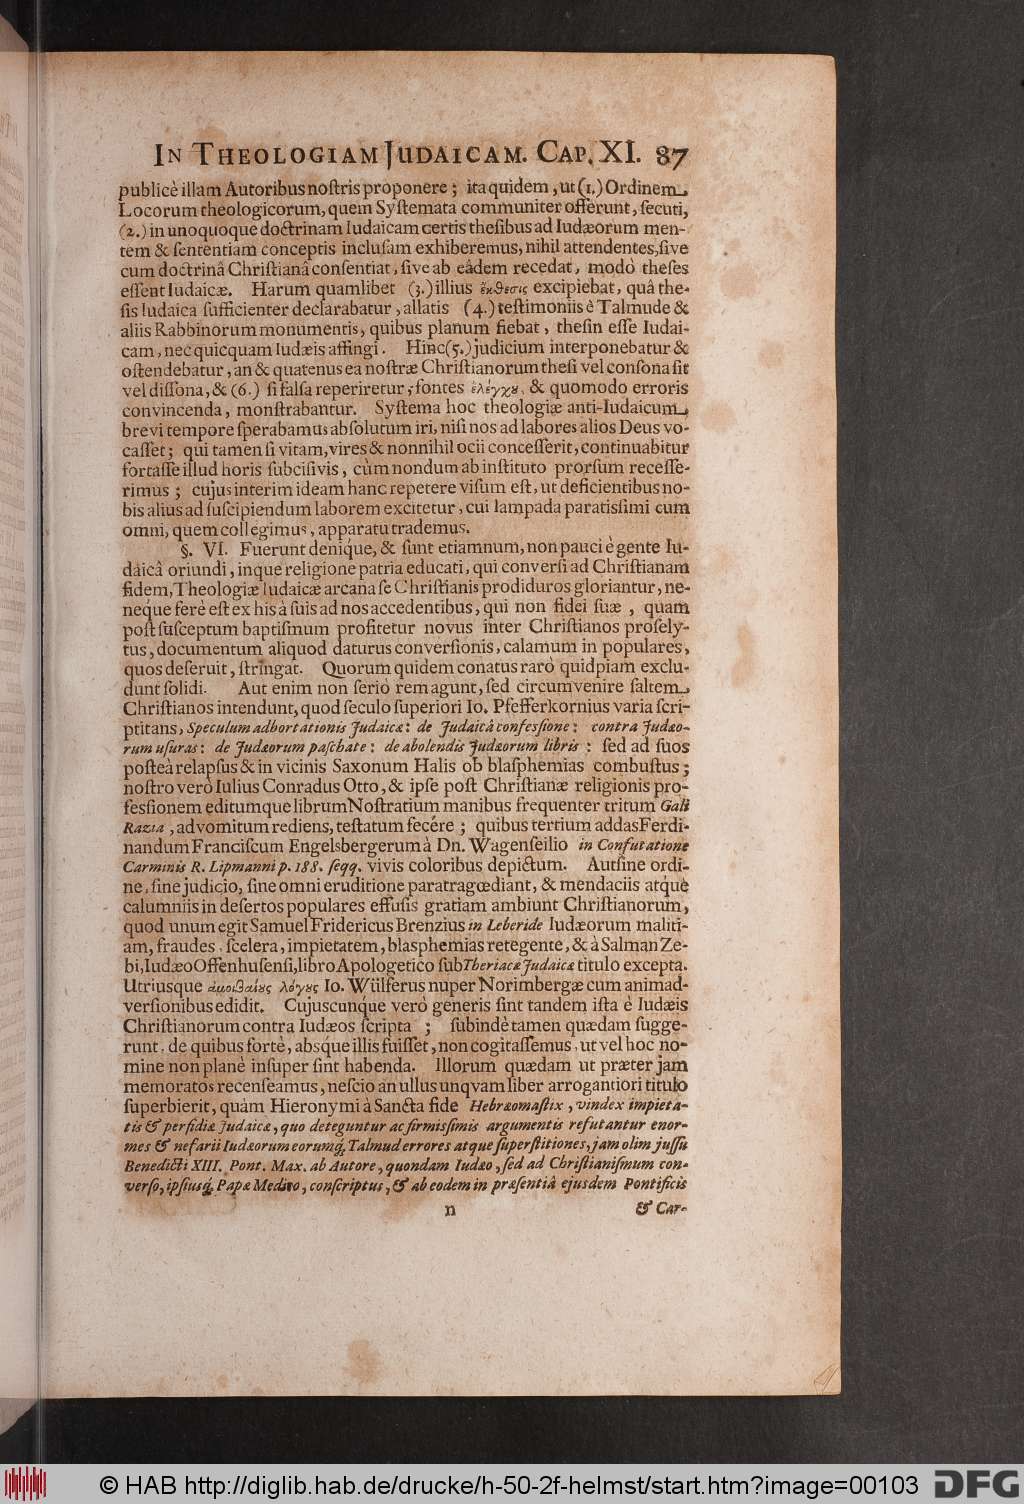 IN THEOLOGIAM JUDAICAM. CAP. XI. 87
publicè illam Autoribus noſtris proponere; ita quidem, ut (1.) Ordinem
Locorum theologicorum, quem Syſtemata communiter offerunt, ſecuti,
(2.) in unoquoque doctrinam Iudaicam certis theſibus ad Iudæorum men-
tem & ſententiam conceptis incluſam exhiberemus, nihil attendentes, ſive
cum doctrinâ Chriſtianâ conſentiat, ſive ab eâdem recedat, modò theſes
eſſent Iudaicæ. Harum quamlibet (3.) illius ἔκθεσις excipiebat, quâ the-
ſis Iudaica ſufficienter declarabatur, allatis (4.) teſtimoniis è Talmude &
aliis Rabbinorum monumentis, quibus planum fiebat, theſin eſſe Iudai-
cam, nec quicquam Iudæis affingi. Hinc (5.) judicium interponebatur &
oſtendebatur, an & quatenus ea noſtræ Chriſtianorum theſi vel conſona ſit
vel diſſona, & (6.) ſi falſa reperiretur, fontes ἐλέγχȣ, & quomodo erroris
convincenda, monſtrabantur. Syſtema hoc theologiæ anti-Iudaicum,
brevi tempore ſperabamus abſolutum iri, niſi nos ad labores alios Deus vo-
caſſet; qui tamen ſi vitam, vires & nonnihil ocii conceſſerit, continuabitur
fortaſſe illud horis ſubciſivis, cùm nondum ab inſtituto prorſum receſſe-
rimus; cujus interim ideam hanc repetere viſum eſt, ut deficientibus no-
bis alius ad ſuſcipiendum laborem excitetur, cui lampada paratiſſimi cum
omni, quem collegimus, apparatu trademus.
§. VI. Fuerunt deniq́ue, & ſunt etiamnum, non pauci è gente Iu-
daicâ oriundi, inque religione patria educati, qui converſi ad Chriſtianam
fidem, Theologiæ Iudaicæ arcana ſe Chriſtianis prodituros gloriantur, ne-
neq́ue ferè eſt ex his à ſuis ad nos accedentibus, qui non fidei ſuæ, quam
poſt ſuſceptum baptiſmum profitetur novus inter Chriſtianos proſely-
tus, documentum aliquod daturus converſionis, calamum in populares,
quos deſeruit, ſtringat. Quorum quidem conatus rarò quidpiam exclu-
dunt ſolidi. Aut enim non ſeriò rem agunt, ſed circumvenire ſaltem
Chriſtianos intendunt, quod ſeculo ſuperiori Io. Pfefferkornius varia ſcri-
ptitans, Speculum adhortationis Judaicæ: de Judaicâ confeſſione: contra Judæo-
rum uſuras: de Judæorum paſchate: de abolendis Judæorum libris: ſed ad ſuos
poſteà relapſus & in vicinis Saxonum Halis ob blaſphemias combuſtus;
noſtro verò Iulius Conradus Otto, & ipſe poſt Chriſtianæ religionis pro-
feſſionem editumque librum Noſtratium manibus frequenter tritum Gali
Razia, ad vomitum rediens, teſtatum fecére; quibus tertium addas Ferdi-
nandum Franciſcum Engelsbergerum à Dn. Wagenſeilio in Confutatione
Carminis R. Lipmanni p. 188. ſeqq. vivis coloribus depictum. Aut ſine ordi-
ne, ſine judicio, ſine omni eruditione paratragœdiant, & mendaciis atque
calumniis in deſertos populares effuſis gratiam ambiunt Chriſtianorum,
quod unum egit Samuel Fridericus Brenzius in Leberide Iudæorum maliti-
am, fraudes, ſcelera, impietatem, blasphemias retegente, & à Salman Ze-
bi, Iudæo Offenhuſenſi, libro Apologetico ſub Theriacæ Judaicæ titulo excepta.
Utriusque ἀμοιβαίȣς λόγȣς Io. Wülferus nuper Norimbergæ cum animad-
verſionibus edidit. Cujuscunq́ue verò generis ſint tandem iſta è Iudæis
Chriſtianorum contra Iudæos ſcripta; ſubindè tamen quædam ſugge-
runt, de quibus fortè, absq́ue illis fuiſſet, non cogitaſſemus, ut vel hoc no-
mine non planè inſuper ſint habenda. Illorum quædam ut præter jam
memoratos recenſeamus, neſcio an ullus unqvam liber arrogantiori titulo
ſuperbierit, quàm Hieronymi à Sancta fide Hebræomaſtix, vindex impieta-
tis & perfidiæ Judaicæ, quo deteguntur ac firmiſſimis argumentis refutantur enor-
mes & nefarii Iudæorum eorumq́; Talmud errores atque ſuperſtitiones, jam olim juſſu
Benedicti XIII. Pont. Max. ab Autore, quondam Iudæo, ſed ad Chriſtianiſmum con-
verſo, ipſiusq́; Papæ Medico, conſcriptus, & ab eodem in præſentiâ ejusdem Pontificis
n & Car-
© HAB http://diglib.hab.de/drucke/h-50-2f-helmst/start.htm?image=00103 DFG